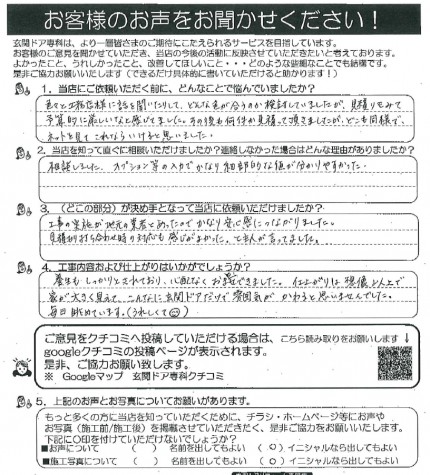 お客様のお声をお聞かせください！
玄関ドア専科は、より一層皆さまのご期待にこたえられるサービスを目指しています。
お客様のご意見を聞かせていただき、当店の今後の活動に反映させていただきたいと考えております。
よかったこと、うれしかったこと、改善してほしいこと・・・どのような些細なことでも結構です。
是非ご協力お願いいたします（できるだけ具体的に書いていただけると助かります！）
1．当店にご依頼いただく前に、どんなことで悩んでいましたか？
色々と工務店様に話を聞いたりして、どんな色が合うのか検討していましたが、見積りもみて
予算的に厳しいなと感じてました。その後も何件か見積して頂きましたが、どこも同様で、
ネットを見てこれならいけると思いました。
2．当店を知って直ぐに相談いただけましたか？連絡しなかった場合はどんな理由がありましたか？
相談しました。オプション等の入力でかなり細部的な値が分かりやすかった。
3．（どこの部分）が決め手となって当店に依頼いただけましたか？
工事の実施が地元の業者とあったのでかなり安心感につながりました。
見積打ち合わせ時の対応も感じがよかった。と主人が言ってました。
4．工事内容および仕上がりはいかがでしょうか？
養生もしっかりとされており、心配なくお任せできました。仕上がりは想像以上で
家が大きく見えて、こんなに玄関ドアだけで雰囲気がかわると思いませんでした。
毎日眺めています。（うれしくて）
ご意見をクチコミへ投稿していただける場合は、こちら読み取りをお願いします
googleクチコミの投稿ページが表示されます。
是非、ご協力お願い致します。
※ Googleマップ 玄関ドア専科クチコミ
5．上記のお声とお写真についてお願いがあります。
もっと多くの方に当店を知っていただくために、チラシ・ホームページ等にお声や
お写真（施工前/施工後）を掲載させていただきたく、是非ご協力をお願いいたします。
下記に〇印を付けていただけないでしょうか？
■お声について （ ）名前を出してもよい （○）イニシャルなら出してもよい
■施工写真について （ ）名前を出してもよい （○）イニシャルなら出してもよい